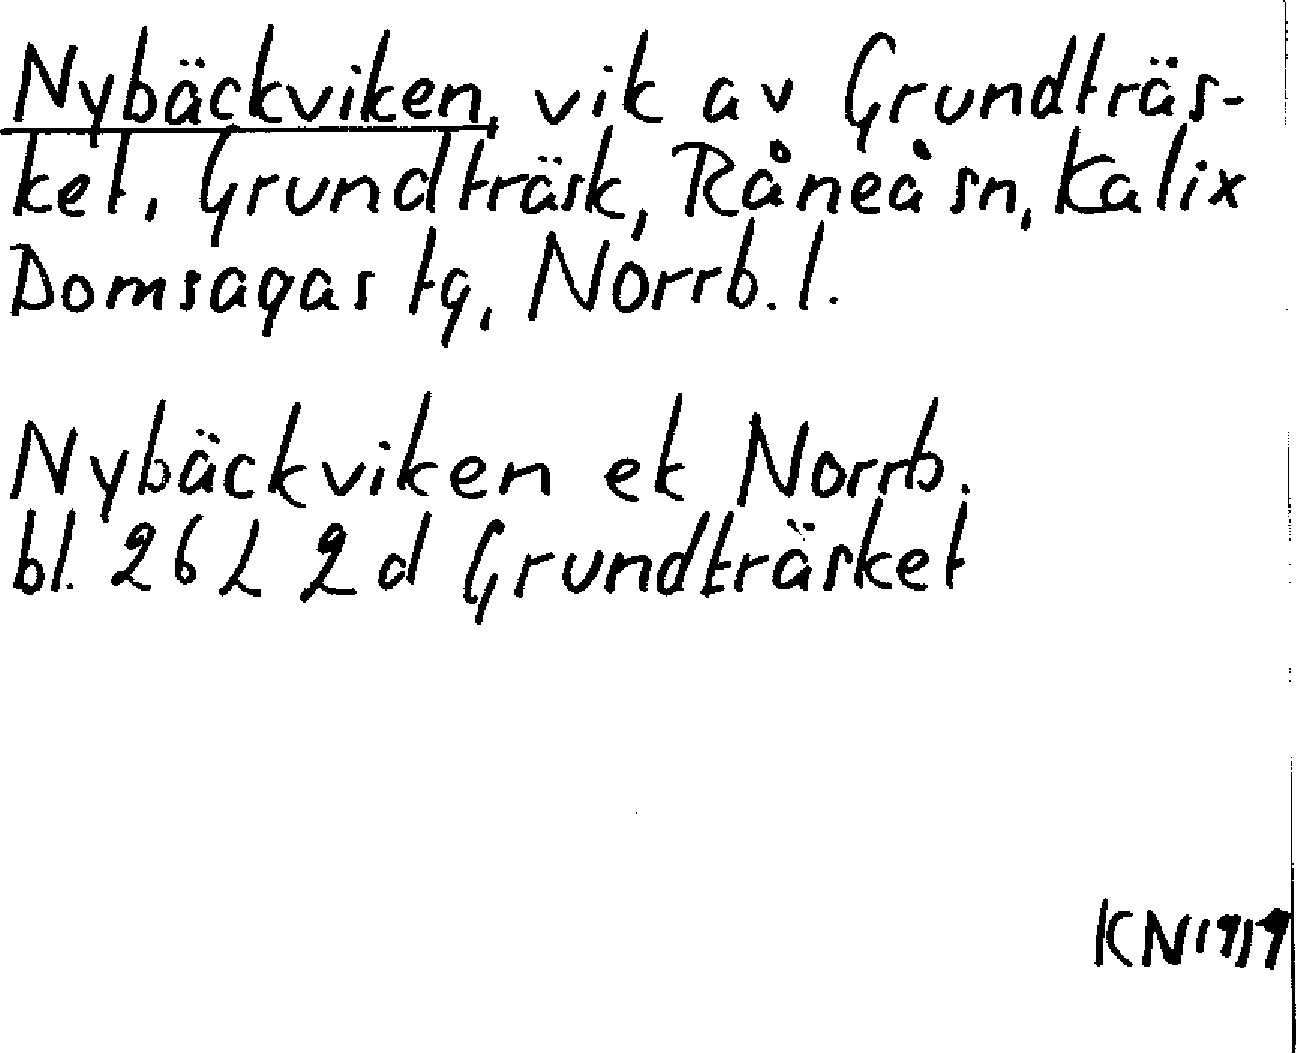 Nybäckviken, vik av Grundträs-
ket, Grundträsk, Råneå sn, Kalix
Domsagas tg, Norrb. l.
Nybäckviken ek Norrb.
bl. 26 L 2 d Grundträsket
KN 1919